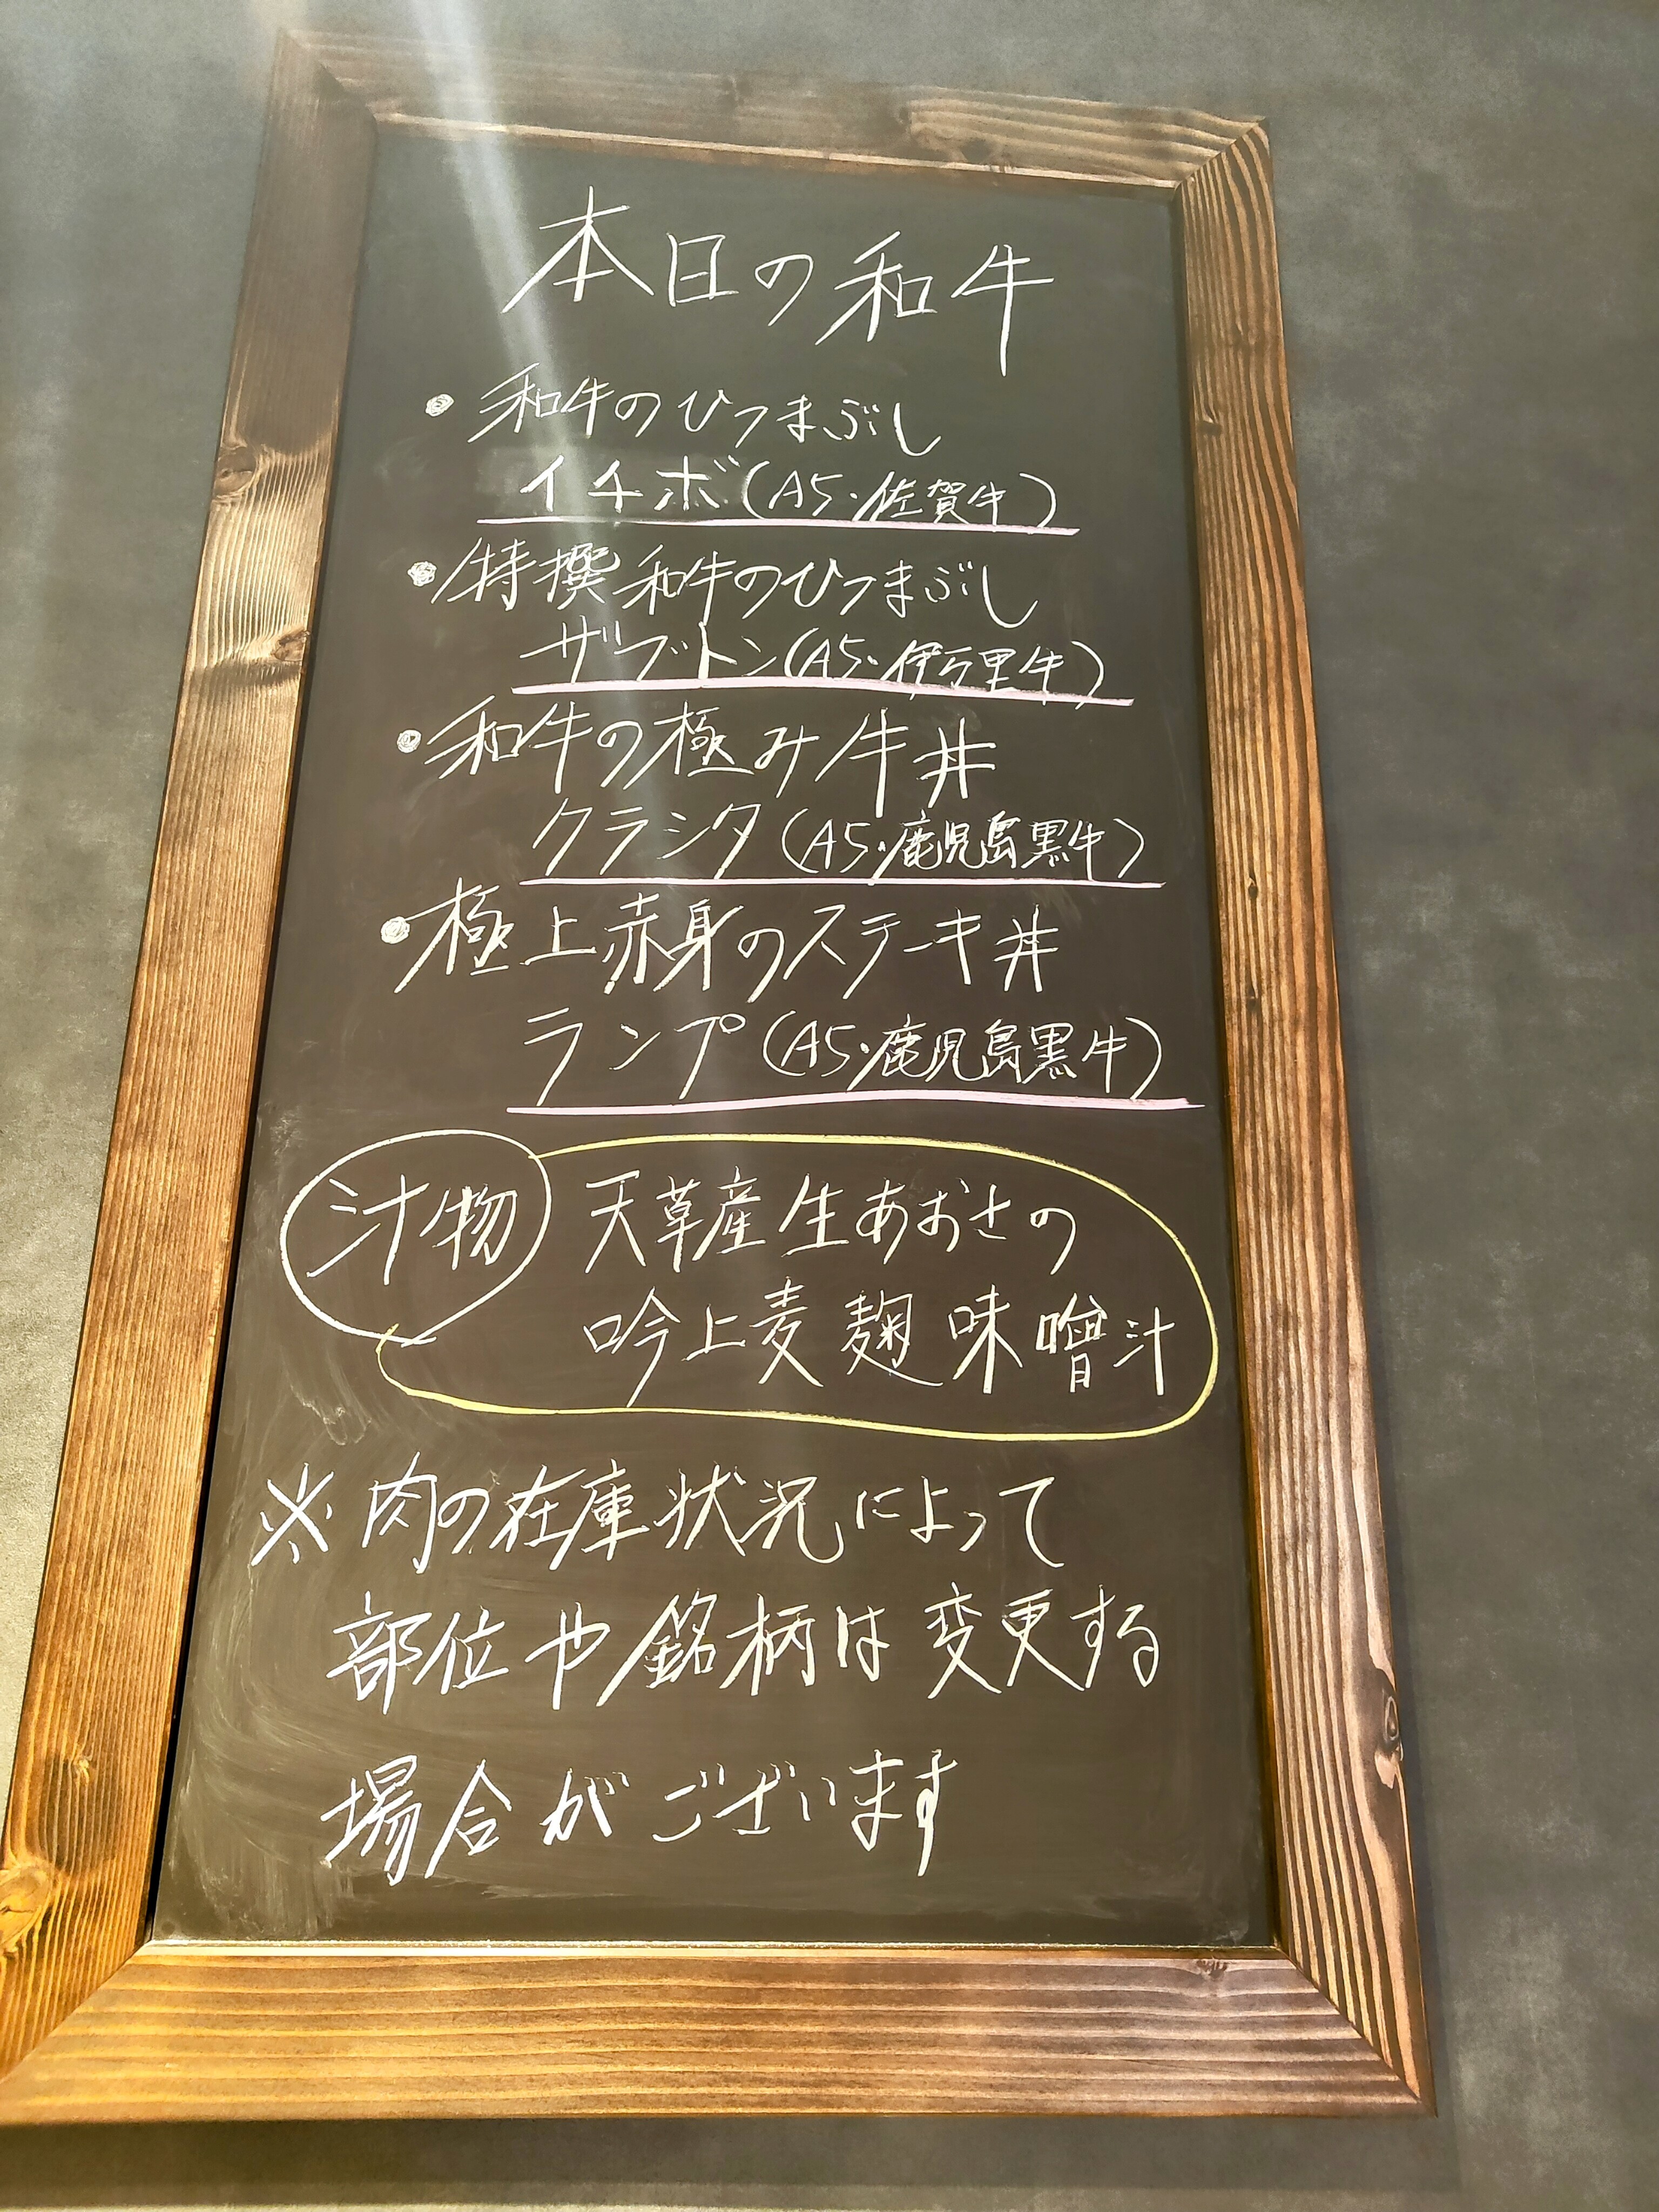 本日の和牛
• 和牛のひつまぶし
イチボ(A5・佐賀牛)
• 特撰和牛のひつまぶし
ザブトン(A5・伊万里牛)
• 和牛の極み牛丼
クラシタ(A5・鹿児島黒牛)
• 極上赤身のステーキ丼
ランプ(A5・鹿児島黒牛)
汁物 天草産生あおさの
吟上麦麹味噌汁
※肉の在庫状況によって
部位や銘柄は変更する
場合がございます